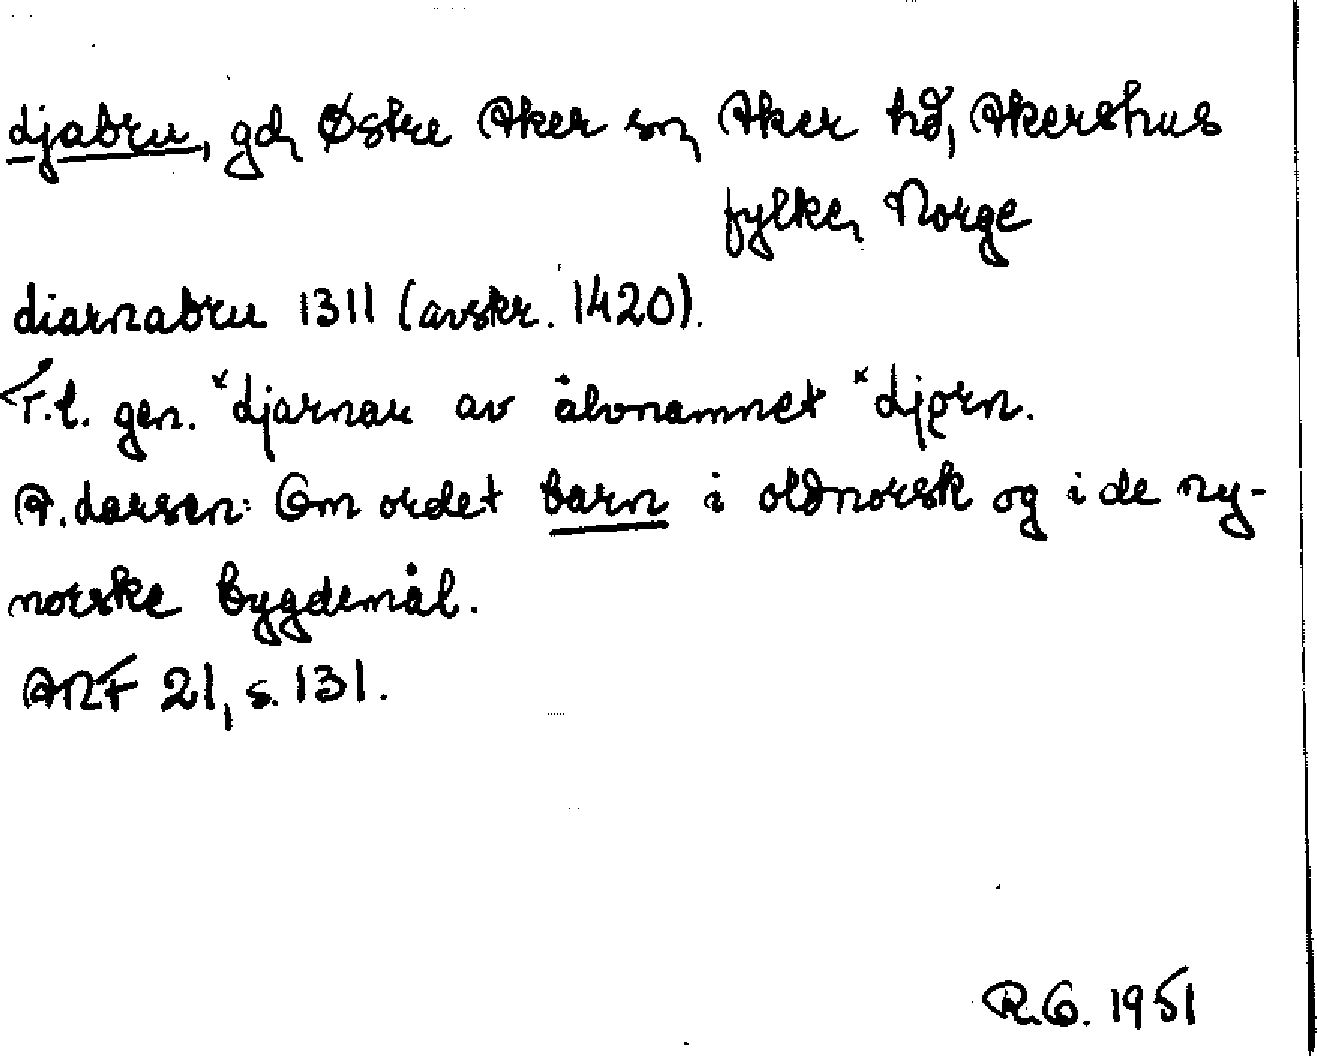 Ljabru, gd, Østre Aker sn, Aker hd, Akershus
fylke, Norge
Liarnabru 1311 (avskr. 1420).
F.l. gen. *Ljarnar av älvnamnet *Ljǫrn.
A. Larsen: Om ordet barn i oldnorsk og i de ny-
norske bygdemål.
ANF 21, s. 131.
R.G. 1951